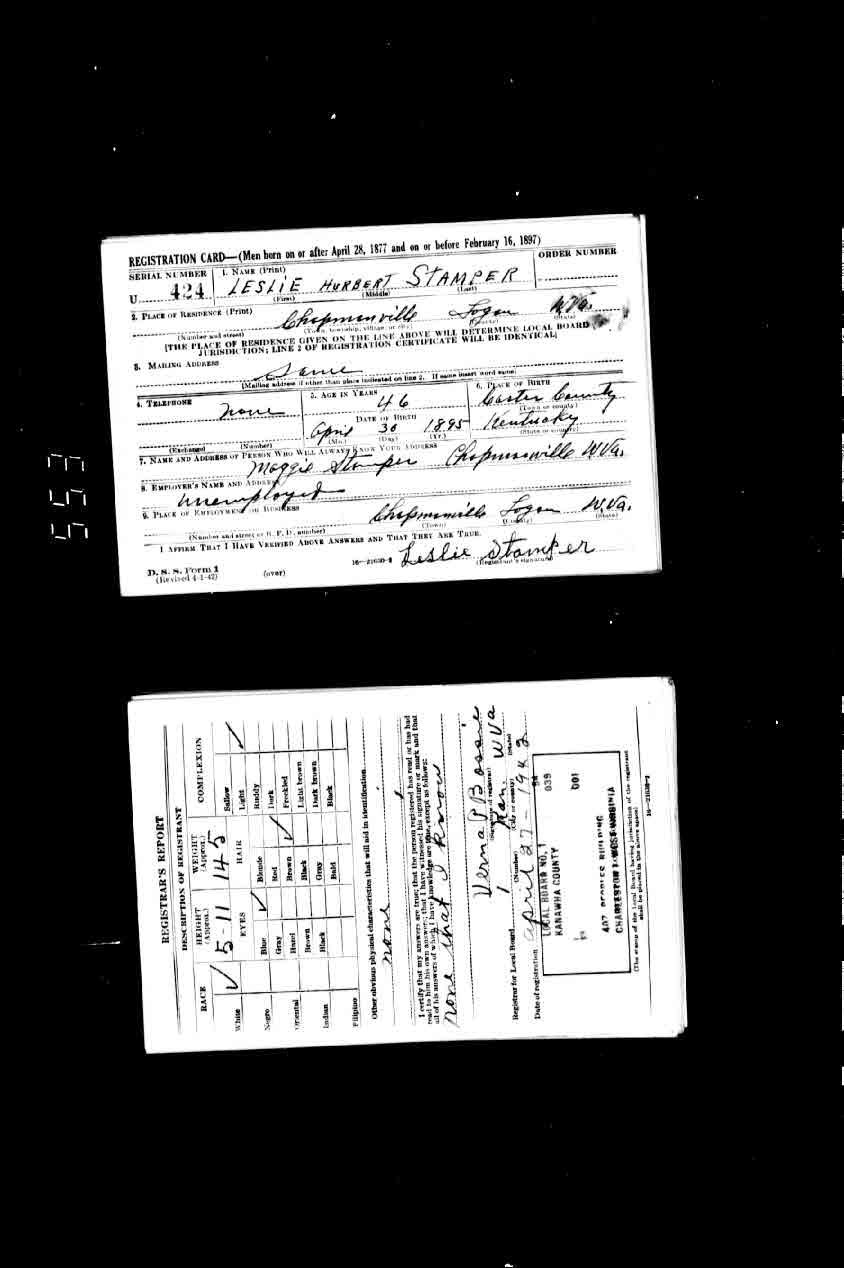 REGISTRATION CARD—(Men born on or after April 28, 1877 and on or before February 16, 1897)
SERIAL NUMBER 1. NAME (Print) ORDER NUMBER
U 424 LESLIE HURBERT STAMPER
(First) (Middle) (Last)
2. PLACE OF RESIDENCE (Print)
Chapmanville Logan W.Va.
(Number and street) (Town, township, village, or city) (County) (State)
[THE PLACE OF RESIDENCE GIVEN ON THE LINE ABOVE WILL DETERMINE LOCAL BOARD
JURISDICTION; LINE 2 OF REGISTRATION CERTIFICATE WILL BE IDENTICAL]
3. MAILING ADDRESS
Same
[Mailing address if other than place indicated on line 2. If same insert word same]
4. TELEPHONE 5. AGE IN YEARS 6. PLACE OF BIRTH
none 46 Carter County
(Town or county)
DATE OF BIRTH
April 30 1895 Kentucky
(Exchange) (Number) (Mo.) (Day) (Yr.) (State or country)
7. NAME AND ADDRESS OF PERSON WHO WILL ALWAYS KNOW YOUR ADDRESS
Maggie Stamper Chapmanville W.Va.
8. EMPLOYER'S NAME AND ADDRESS
unemployed
9. PLACE OF EMPLOYMENT OR BUSINESS
Chapmanville Logan W.Va.
(Number and street or R. F. D. number) (Town) (County) (State)
I AFFIRM THAT I HAVE VERIFIED ABOVE ANSWERS AND THAT THEY ARE TRUE.
Leslie Stamper
D. S. S. Form 1 (Registrant's signature)
(Revised 4-1-42) (over) 16—21630-2
553
REGISTRAR'S REPORT
DESCRIPTION OF REGISTRANT
RACE HEIGHT (Approx.) WEIGHT (Approx.) COMPLEXION
White ✓ 5-11 145 Sallow
EYES HAIR Light ✓
Negro Blue ✓ Blonde Ruddy
Gray Red Dark
Oriental Hazel Brown ✓ Freckled
Brown Black Light brown
Indian Black Gray Dark brown
Bald Black
Filipino
Other obvious physical characteristics that will aid in identification
none
I certify that my answers are true; that the person registered has read or has had
read to him his own answers; that I have witnessed his signature or mark and that
all of his answers of which I have knowledge are true, except as follows:
none that I know
Verna P Bossie
(Signature of registrar)
Registrar for Local Board 1 Kan. W Va
(Number) (City or county) (State)
Date of registration april 27-1942
LOCAL BOARD NO. 1 039
KANAWHA COUNTY 001
407 PEOPLES BUILDING
CHARLESTON 1 WEST VIRGINIA
(The stamp of the Local Board having jurisdiction of the registrant
shall be placed in the above space)
16—21630-2